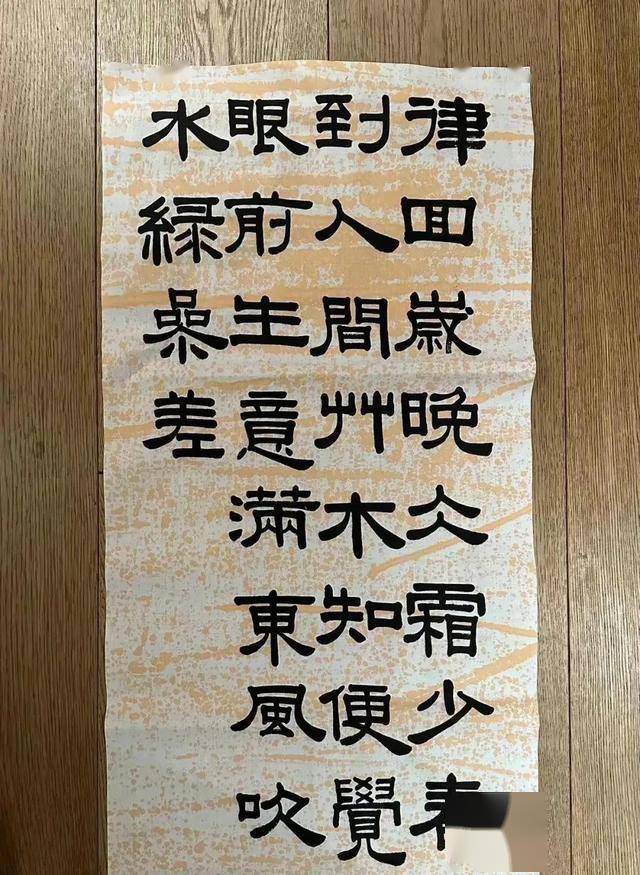 律回歲晚仌霜少
到人間艸木知便覺
眼前生意滿東風吹
水緑喿差